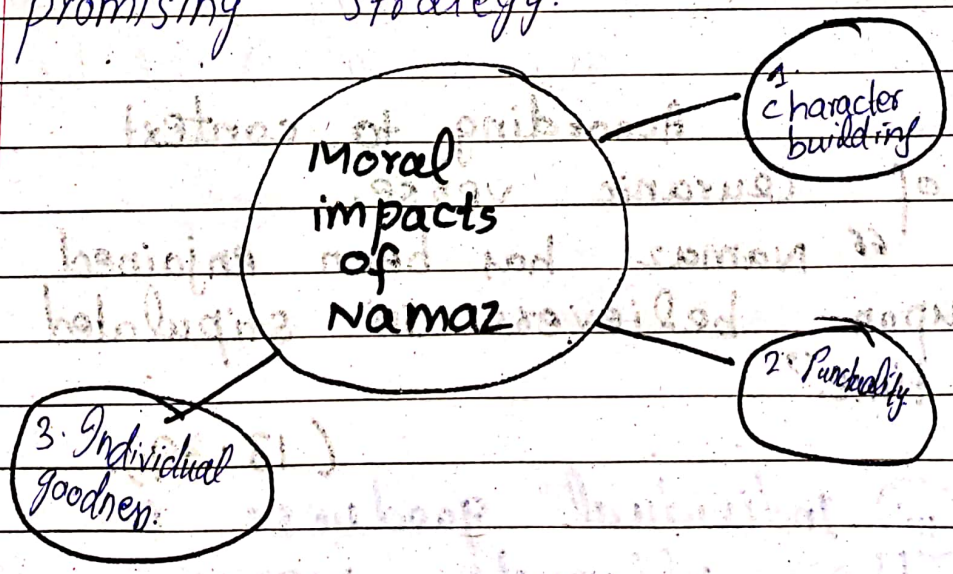 promising strategy.
Moral
impacts
of
Namaz
1.
character
building
2. Punctuality
3. Individual
goodness.